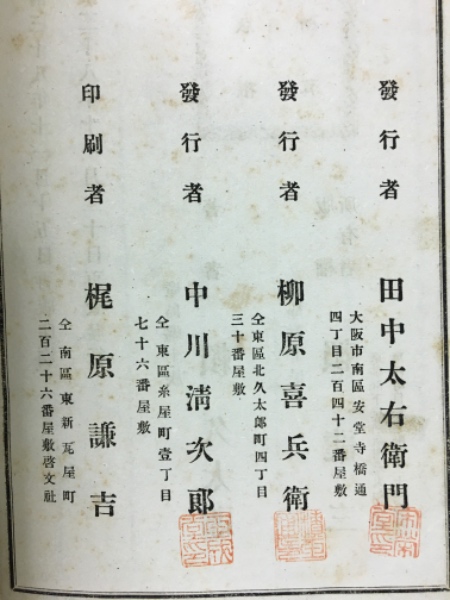 發行者 田中太右衛門
大阪市南區安堂寺橋通
四丁目二百四十二番屋敷
發行者 柳原喜兵衛
仝東區北久太郎町四丁目
三十番屋敷
發行者 中川清次郎
仝東區糸屋町壹丁目
七十六番屋敷
印刷者 梶原謙吉
仝南區東新瓦屋町
二百二十六番屋敷啓文社